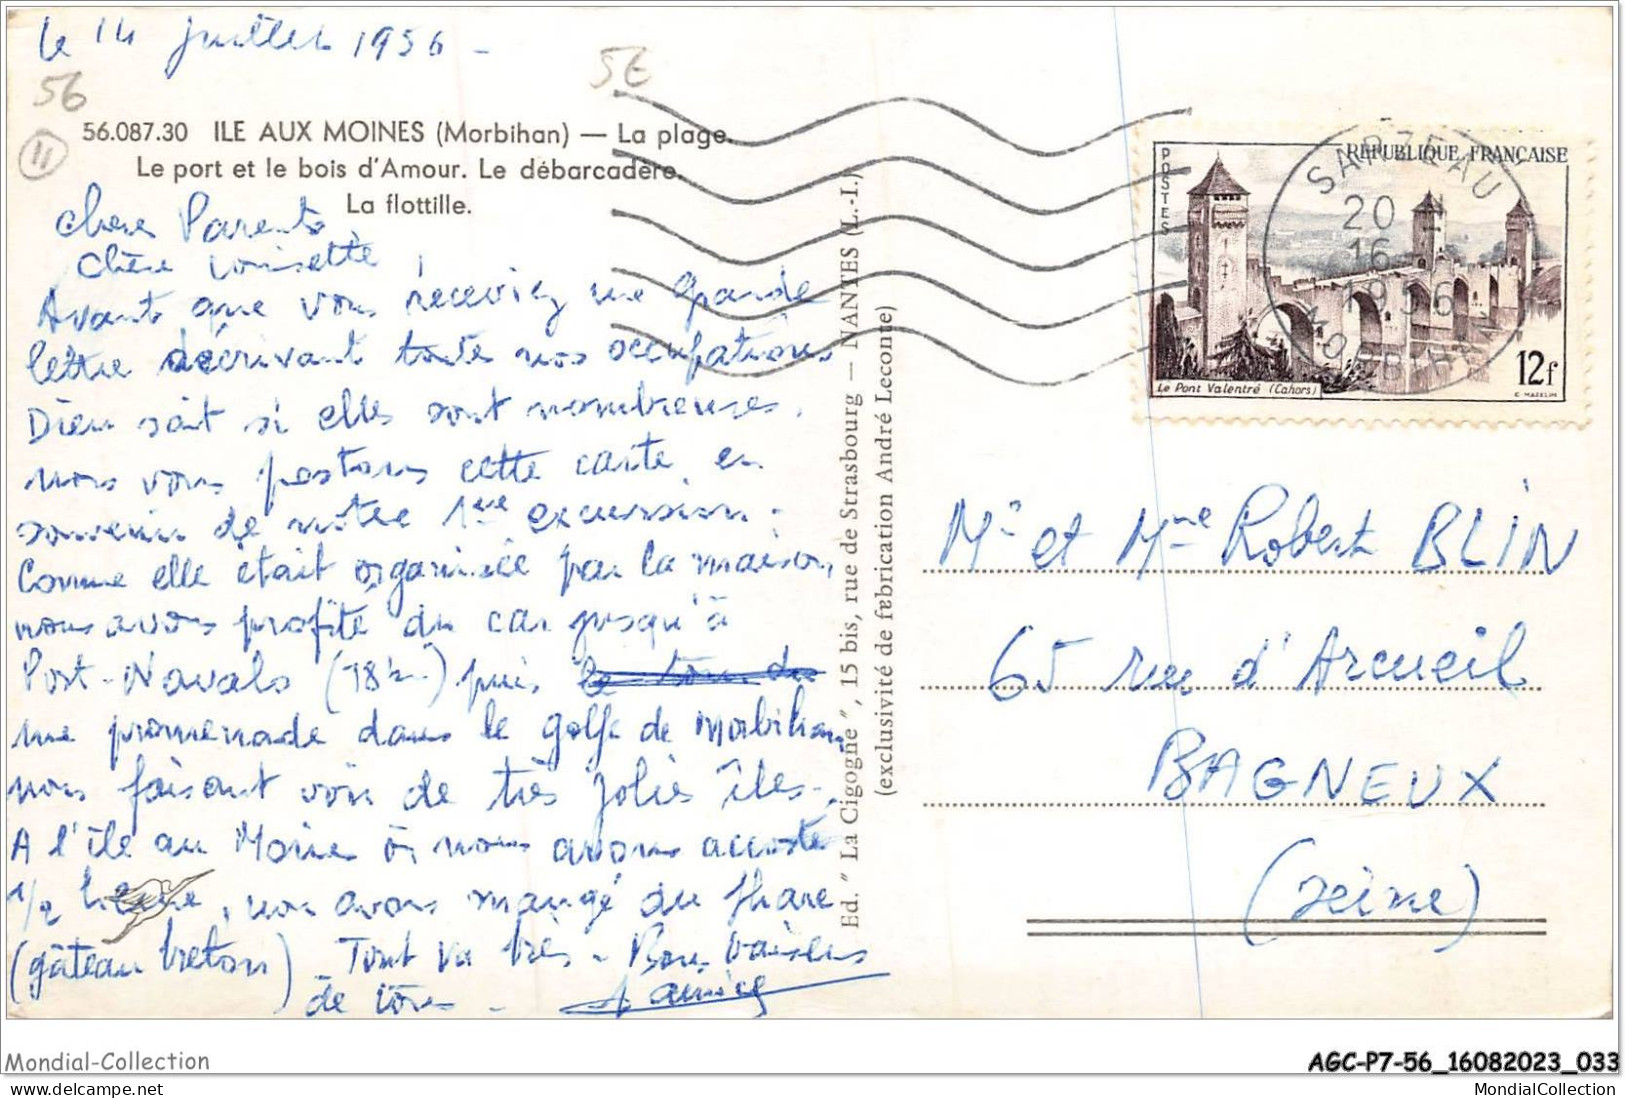 le 14 juillet 1956 -
56
56
11
56.087.30 ILE AUX MOINES (Morbihan) — La plage.
Le port et le bois d'Amour. Le débarcadère.
La flottille.
Chers Parents
Chère
Avant que vous receviez une grande
lettre décrivant toute nos occupations
Dieu sait si elles sont nombreuses,
nous vous postons cette carte en
souvenir de notre 1ère excursion :
Comme elle était organisée par la maison,
nous avons profité du car jusqu'à
Port-Navalo (18 km) puis
une promenade dans le golfe de Morbihan
nous faisant voir de très jolies îles.
A l'île au Moine où nous avons accosté
1/2 heure, nous avons mangé du
(gâteau breton) - Tout va très - Bons baisers
de tous -
Ed. " La Cigogne ", 15 bis, rue de Strasbourg — NANTES (L.-I.)
(exclusivité de fabrication André Leconte)
POSTES
REPUBLIQUE FRANÇAISE
Le Pont Valentré (Cahors)
12f
C. MAZELIN
SARZEAU
20
16
1956
MORBIHAN
Mr et Mme Robert BLIN
65 rue d'Arcueil
BAGNEUX
(Seine)
Mondial-Collection
AGC-P7-56_16082023_033
www.delcampe.net
MondialCollection